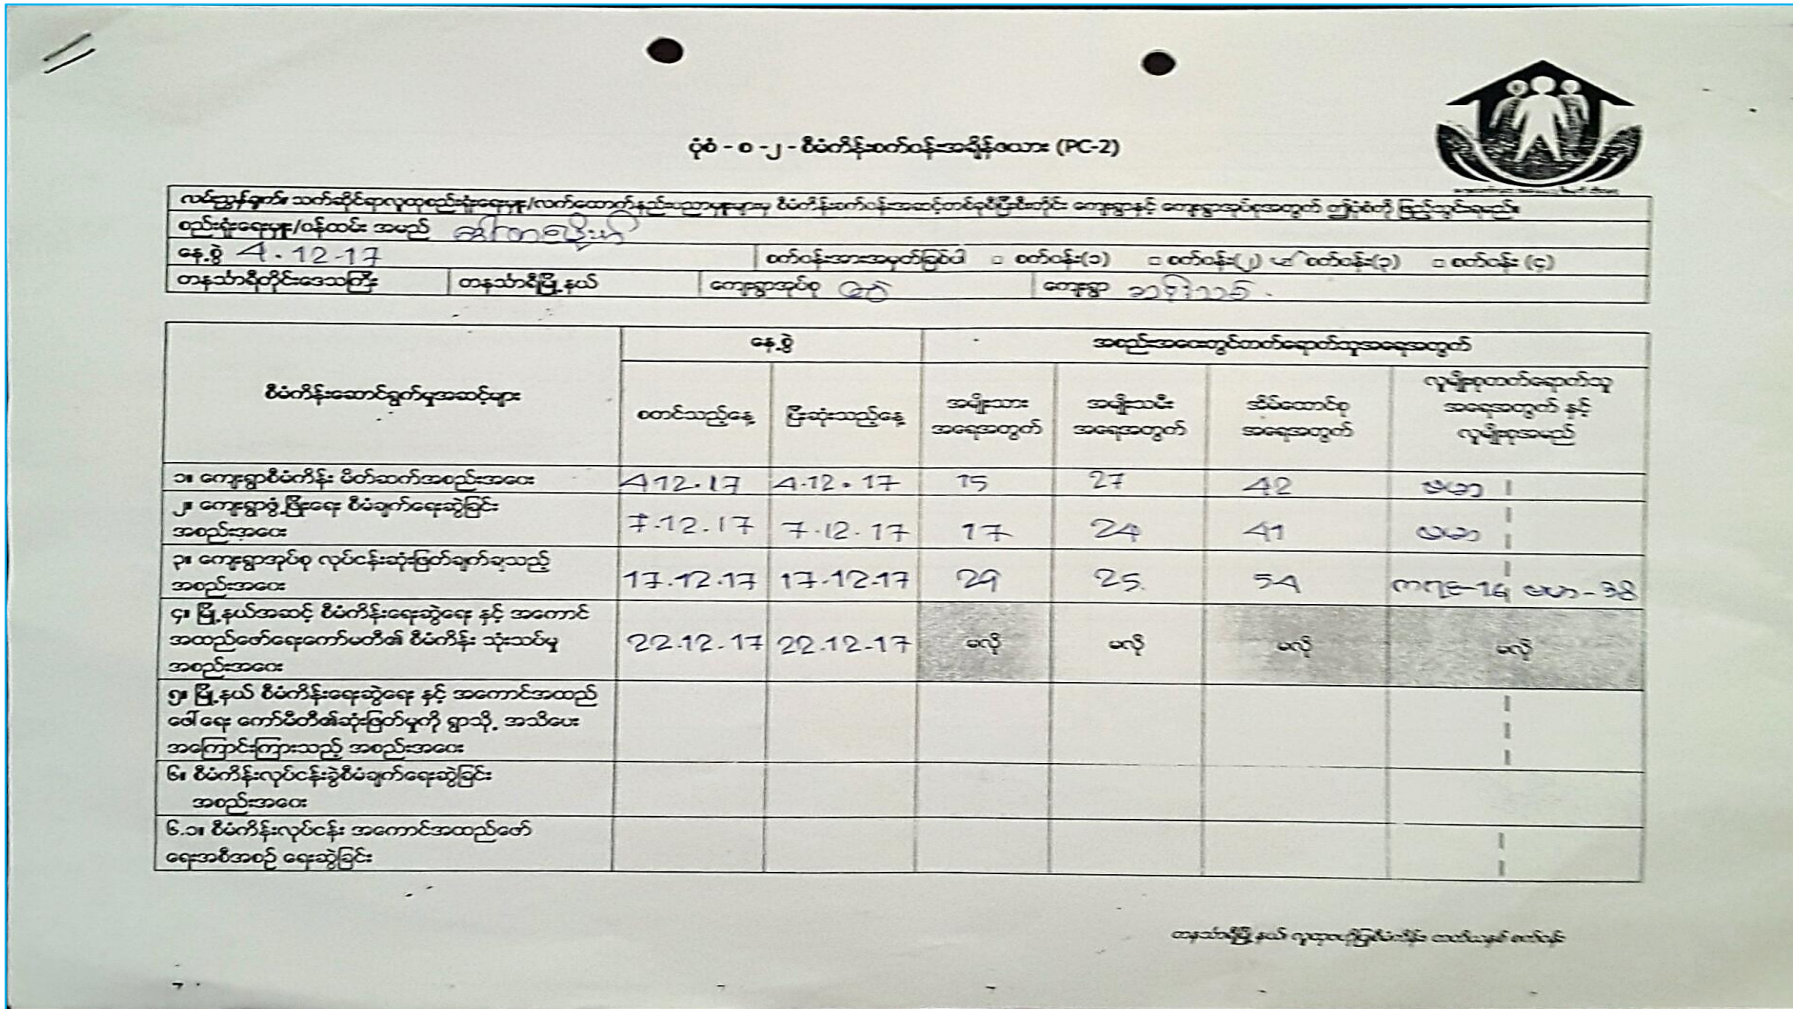 ပုံစံ - စ -၂ - စီမံကိန်းစက်ဝန်းအချိန်ဇယား (PC-2)
လမ်းညွှန်ချက်။ သက်ဆိုင်ရာလူထုစည်းရုံးရေးမှူး/လက်ထောက်နည်းပညာမှူးများမှ စီမံကိန်းစက်ဝန်းအဆင့်တစ်ခုစီပြီးစီးတိုင်း ကျေးရွာနှင့် ကျေးရွာအုပ်စုအတွက် ဤပုံစံကို ဖြည့်သွင်းရမည်။
စည်းရုံးရေးမှူး/ဝန်ထမ်း အမည်
နေ့စွဲ 4.12-17 စက်ဝန်းအားအမှတ်ခြစ်ပါ □ စက်ဝန်း(၁) □ စက်ဝန်း(၂) ☑ စက်ဝန်း(၃) □ စက်ဝန်း (၄)
တနင်္သာရီတိုင်းဒေသကြီး တနင်္သာရီမြို့နယ် ကျေးရွာအုပ်စု ကျေးရွာ
နေ့စွဲ အစည်းအဝေးတွင်တက်ရောက်သူအရေအတွက်
စီမံကိန်းဆောင်ရွက်မှုအဆင့်များ စတင်သည့်နေ့ ပြီးဆုံးသည့်နေ့ အမျိုးသား အရေအတွက် အမျိုးသမီး အရေအတွက် အိမ်ထောင်စု အရေအတွက် လူမျိုးစုတက်ရောက်သူ အရေအတွက် နှင့် လူမျိုးစုအမည်
၁။ ကျေးရွာစီမံကိန်း မိတ်ဆက်အစည်းအဝေး 412.17 4.12.17 15 27 42 ဗမာ
၂။ ကျေးရွာဖွံ့ဖြိုးရေး စီမံချက်ရေးဆွဲခြင်း
အစည်းအဝေး 7.12.17 7.12.17 17 24 41 ဗမာ
၃။ ကျေးရွာအုပ်စု လုပ်ငန်းဆုံးဖြတ်ချက်ချသည့်
အစည်းအဝေး 17.12.17 17.12.17 29 25 54 ကရင်-16 ဗမာ-38
၄။ မြို့နယ်အဆင့် စီမံကိန်းရေးဆွဲရေး နှင့် အကောင်
အထည်ဖော်ရေးကော်မတီ၏ စီမံကိန်း သုံးသပ်မှု 22.12.17 22.12.17 မလို မလို မလို မလို
အစည်းအဝေး
၅။ မြို့နယ် စီမံကိန်းရေးဆွဲရေး နှင့် အကောင်အထည်
ဖေါ်ရေး ကော်မီတီ၏ဆုံးဖြတ်မှုကို ရွာသို့ အသိပေး
အကြောင်းကြားသည့် အစည်းအဝေး
၆။ စီမံကိန်းလုပ်ငန်းခွဲစီမံချက်ရေးဆွဲခြင်း
အစည်းအဝေး
၆.၁။ စီမံကိန်းလုပ်ငန်း အကောင်အထည်ဖော်
ရေးအစီအစဉ် ရေးဆွဲခြင်း